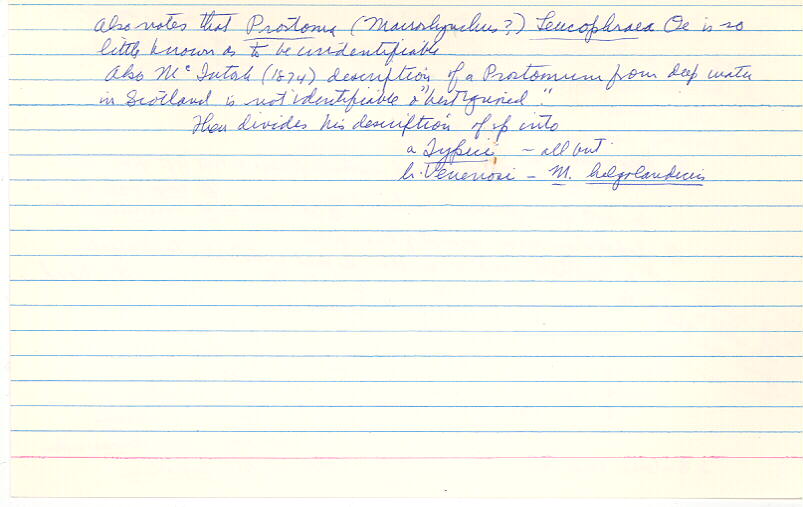 Also notes that Prostoma (Macrorhynchus?) Leucophraea Oe is so
little known as to be unidentifiable
Also McIntosh (1874) description of a Prostomum from deep water
in Scotland is not identifiable & "best ignored".
Then divides his description of sp into
a Typici - all but
b. Venenosi - M. helgolandicus